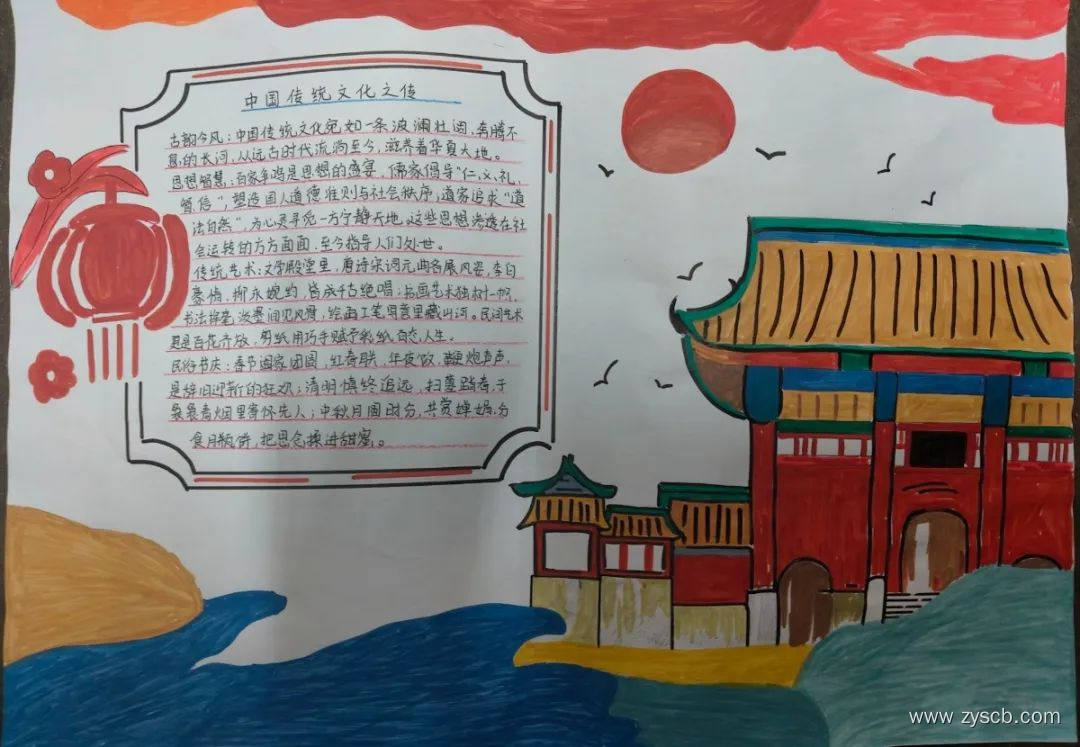 中国传统文化之传
古韵今风：中国传统文化宛如一条波澜壮阔、奔腾不
息的长河，从远古时代流淌至今，滋养着华夏大地。
思想智慧：百家争鸣是思想的盛宴，儒家倡导“仁、义、礼、
智信”，塑造国人道德准则与社会秩序；道家追求“道
法自然”，为心灵寻觅一方宁静天地，这些思想渗透在社
会运转的方方面面，至今指导人们处世。
传统艺术：文学殿堂里，唐诗宋词元曲各展风姿，李白
豪情，柳永婉约，皆成千古绝唱；书画艺术独树一帜，
书法挥毫泼墨间见风骨，绘画工笔写意里藏山河。民间艺术
更是百花齐放，剪纸用巧手赋予彩纸百态人生。
民俗节庆：春节阖家团圆，红春联、年夜饭、鞭炮声声，
是辞旧迎新的狂欢；清明慎终追远，扫墓踏青，于
袅袅青烟里寄怀先人；中秋月圆时分，共赏婵娟，分
食月饼，把思念揉进甜蜜。
www.zyscb.com